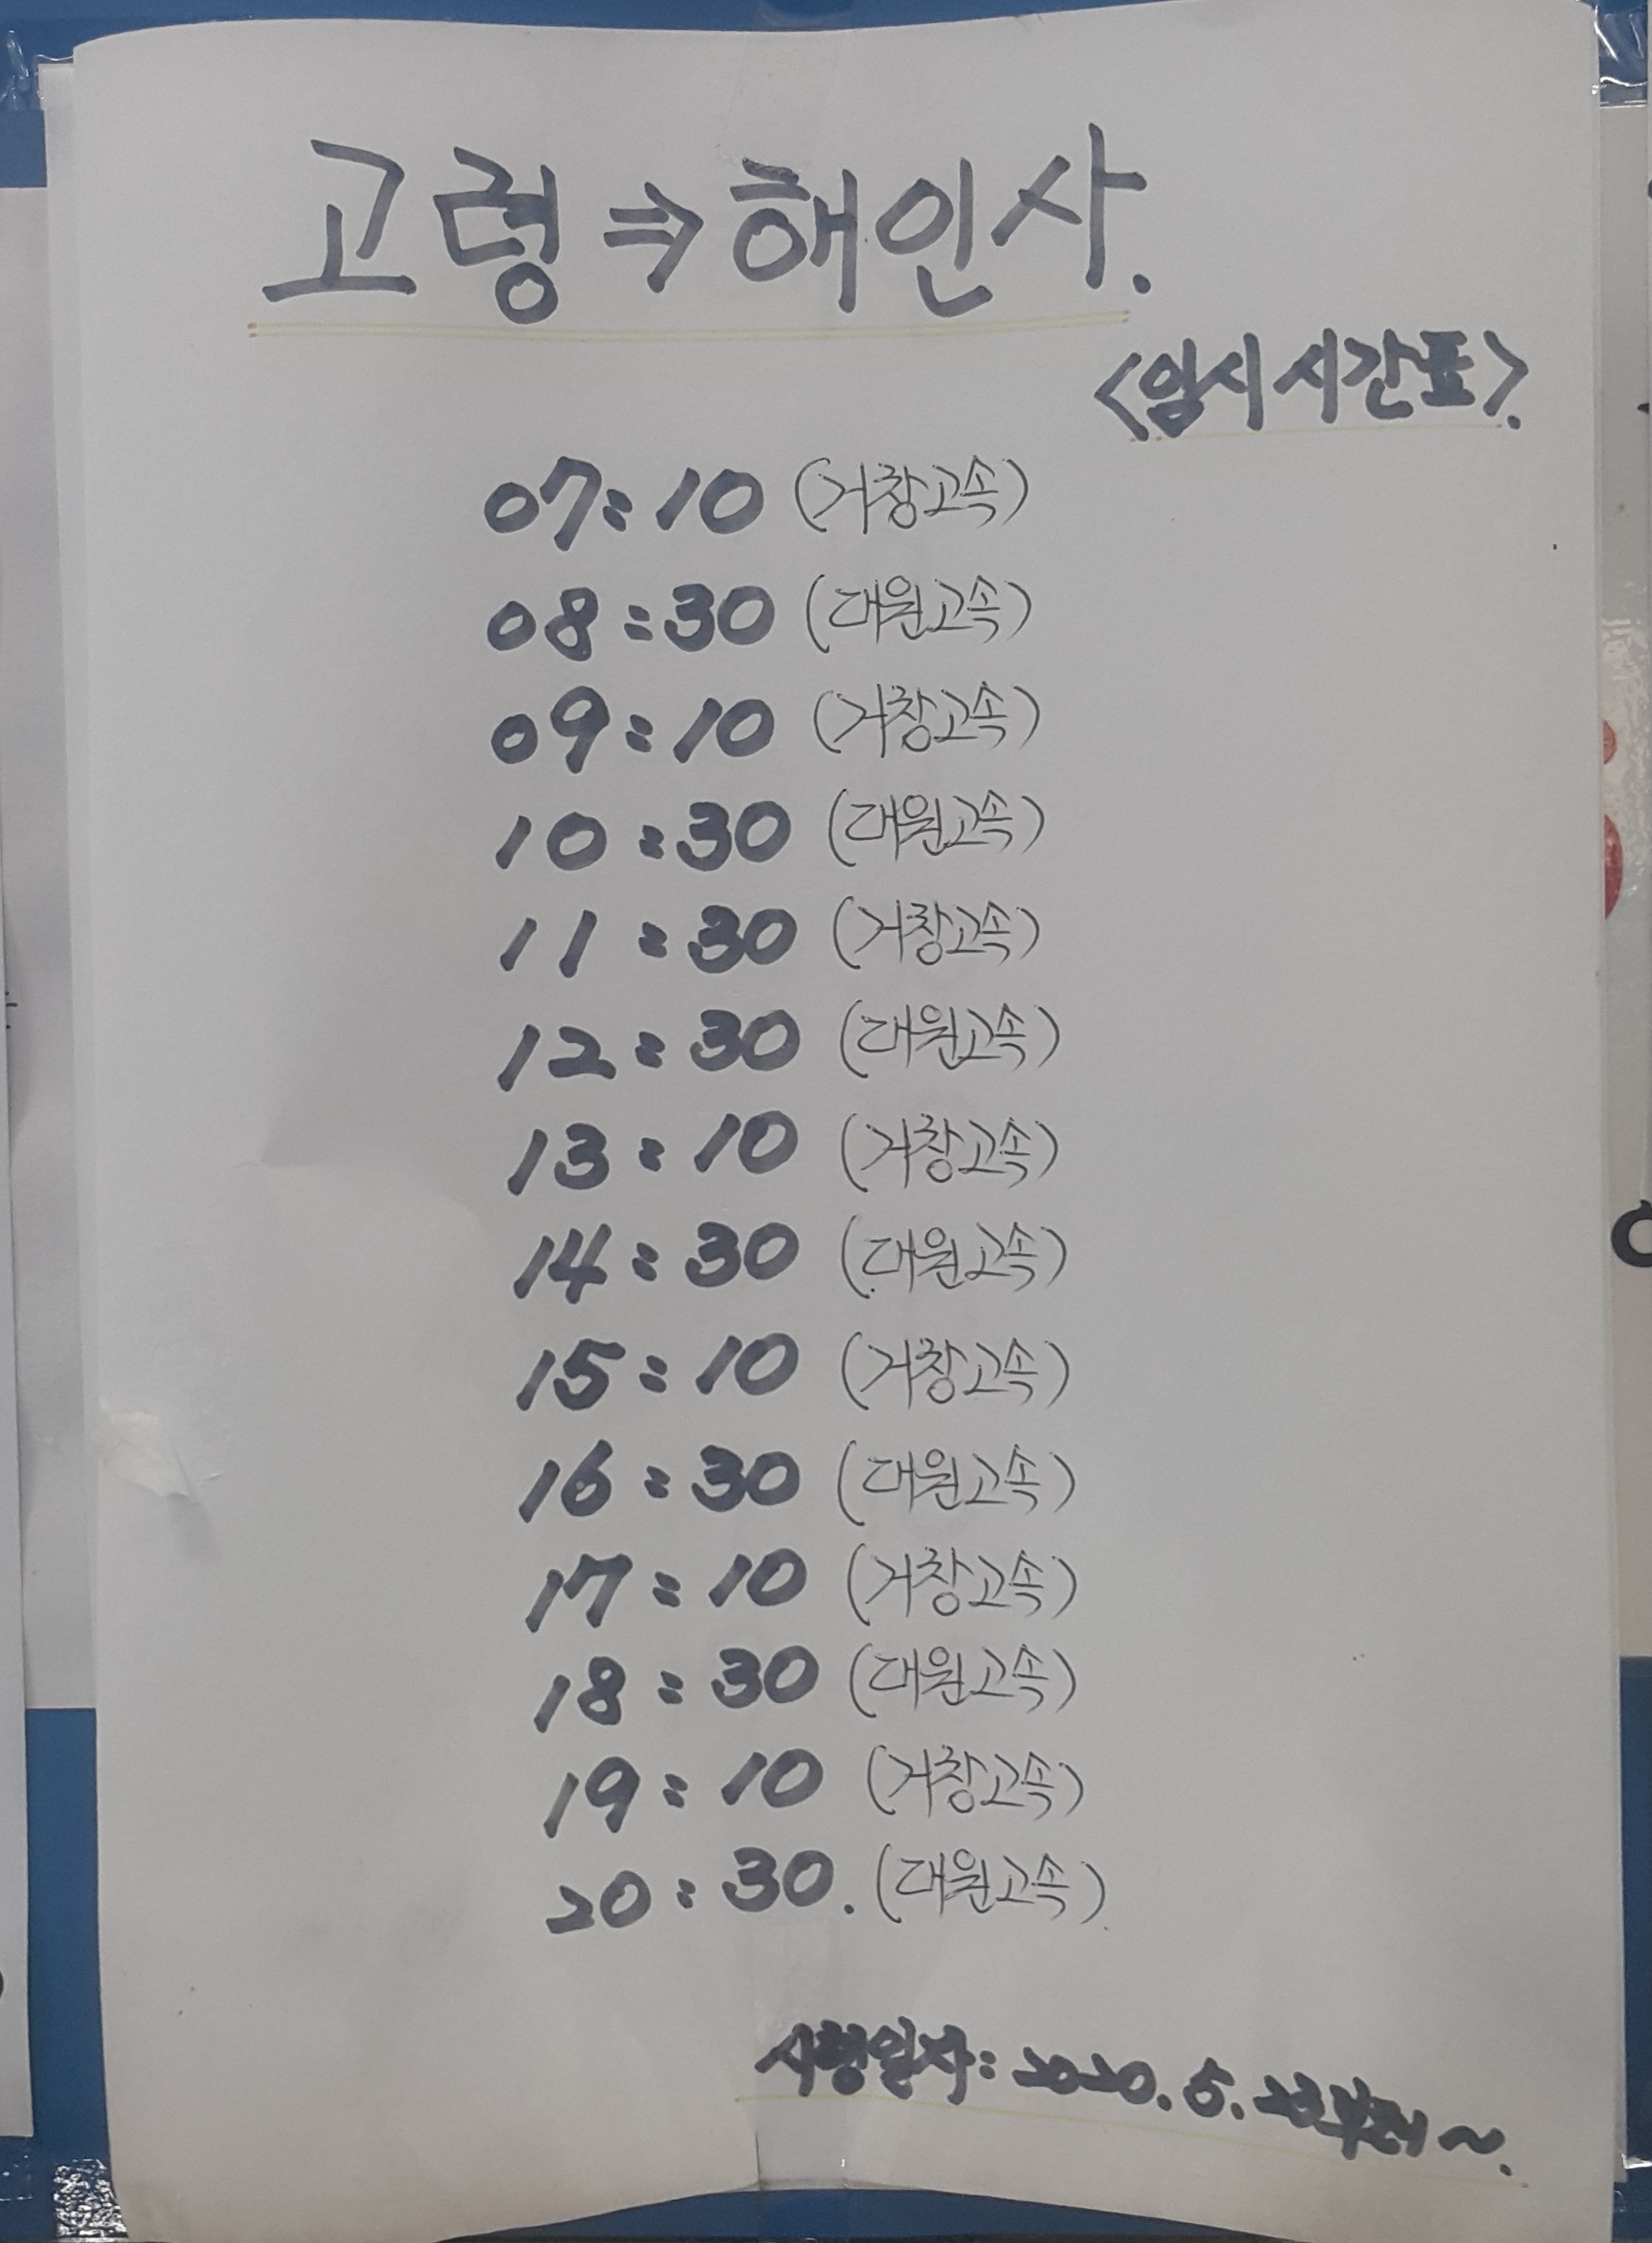 고령⇒해인사.
<임시 시간표>.
07:10 (거창고속)
08:30 (대원고속)
09:10 (거창고속)
10:30 (대원고속)
11:30 (거창고속)
12:30 (대원고속)
13:10 (거창고속)
14:30 (대원고속)
15:10 (거창고속)
16:30 (대원고속)
17:10 (거창고속)
18:30 (대원고속)
19:10 (거창고속)
20:30. (대원고속)
시행일자: 2020.5.23부터~.